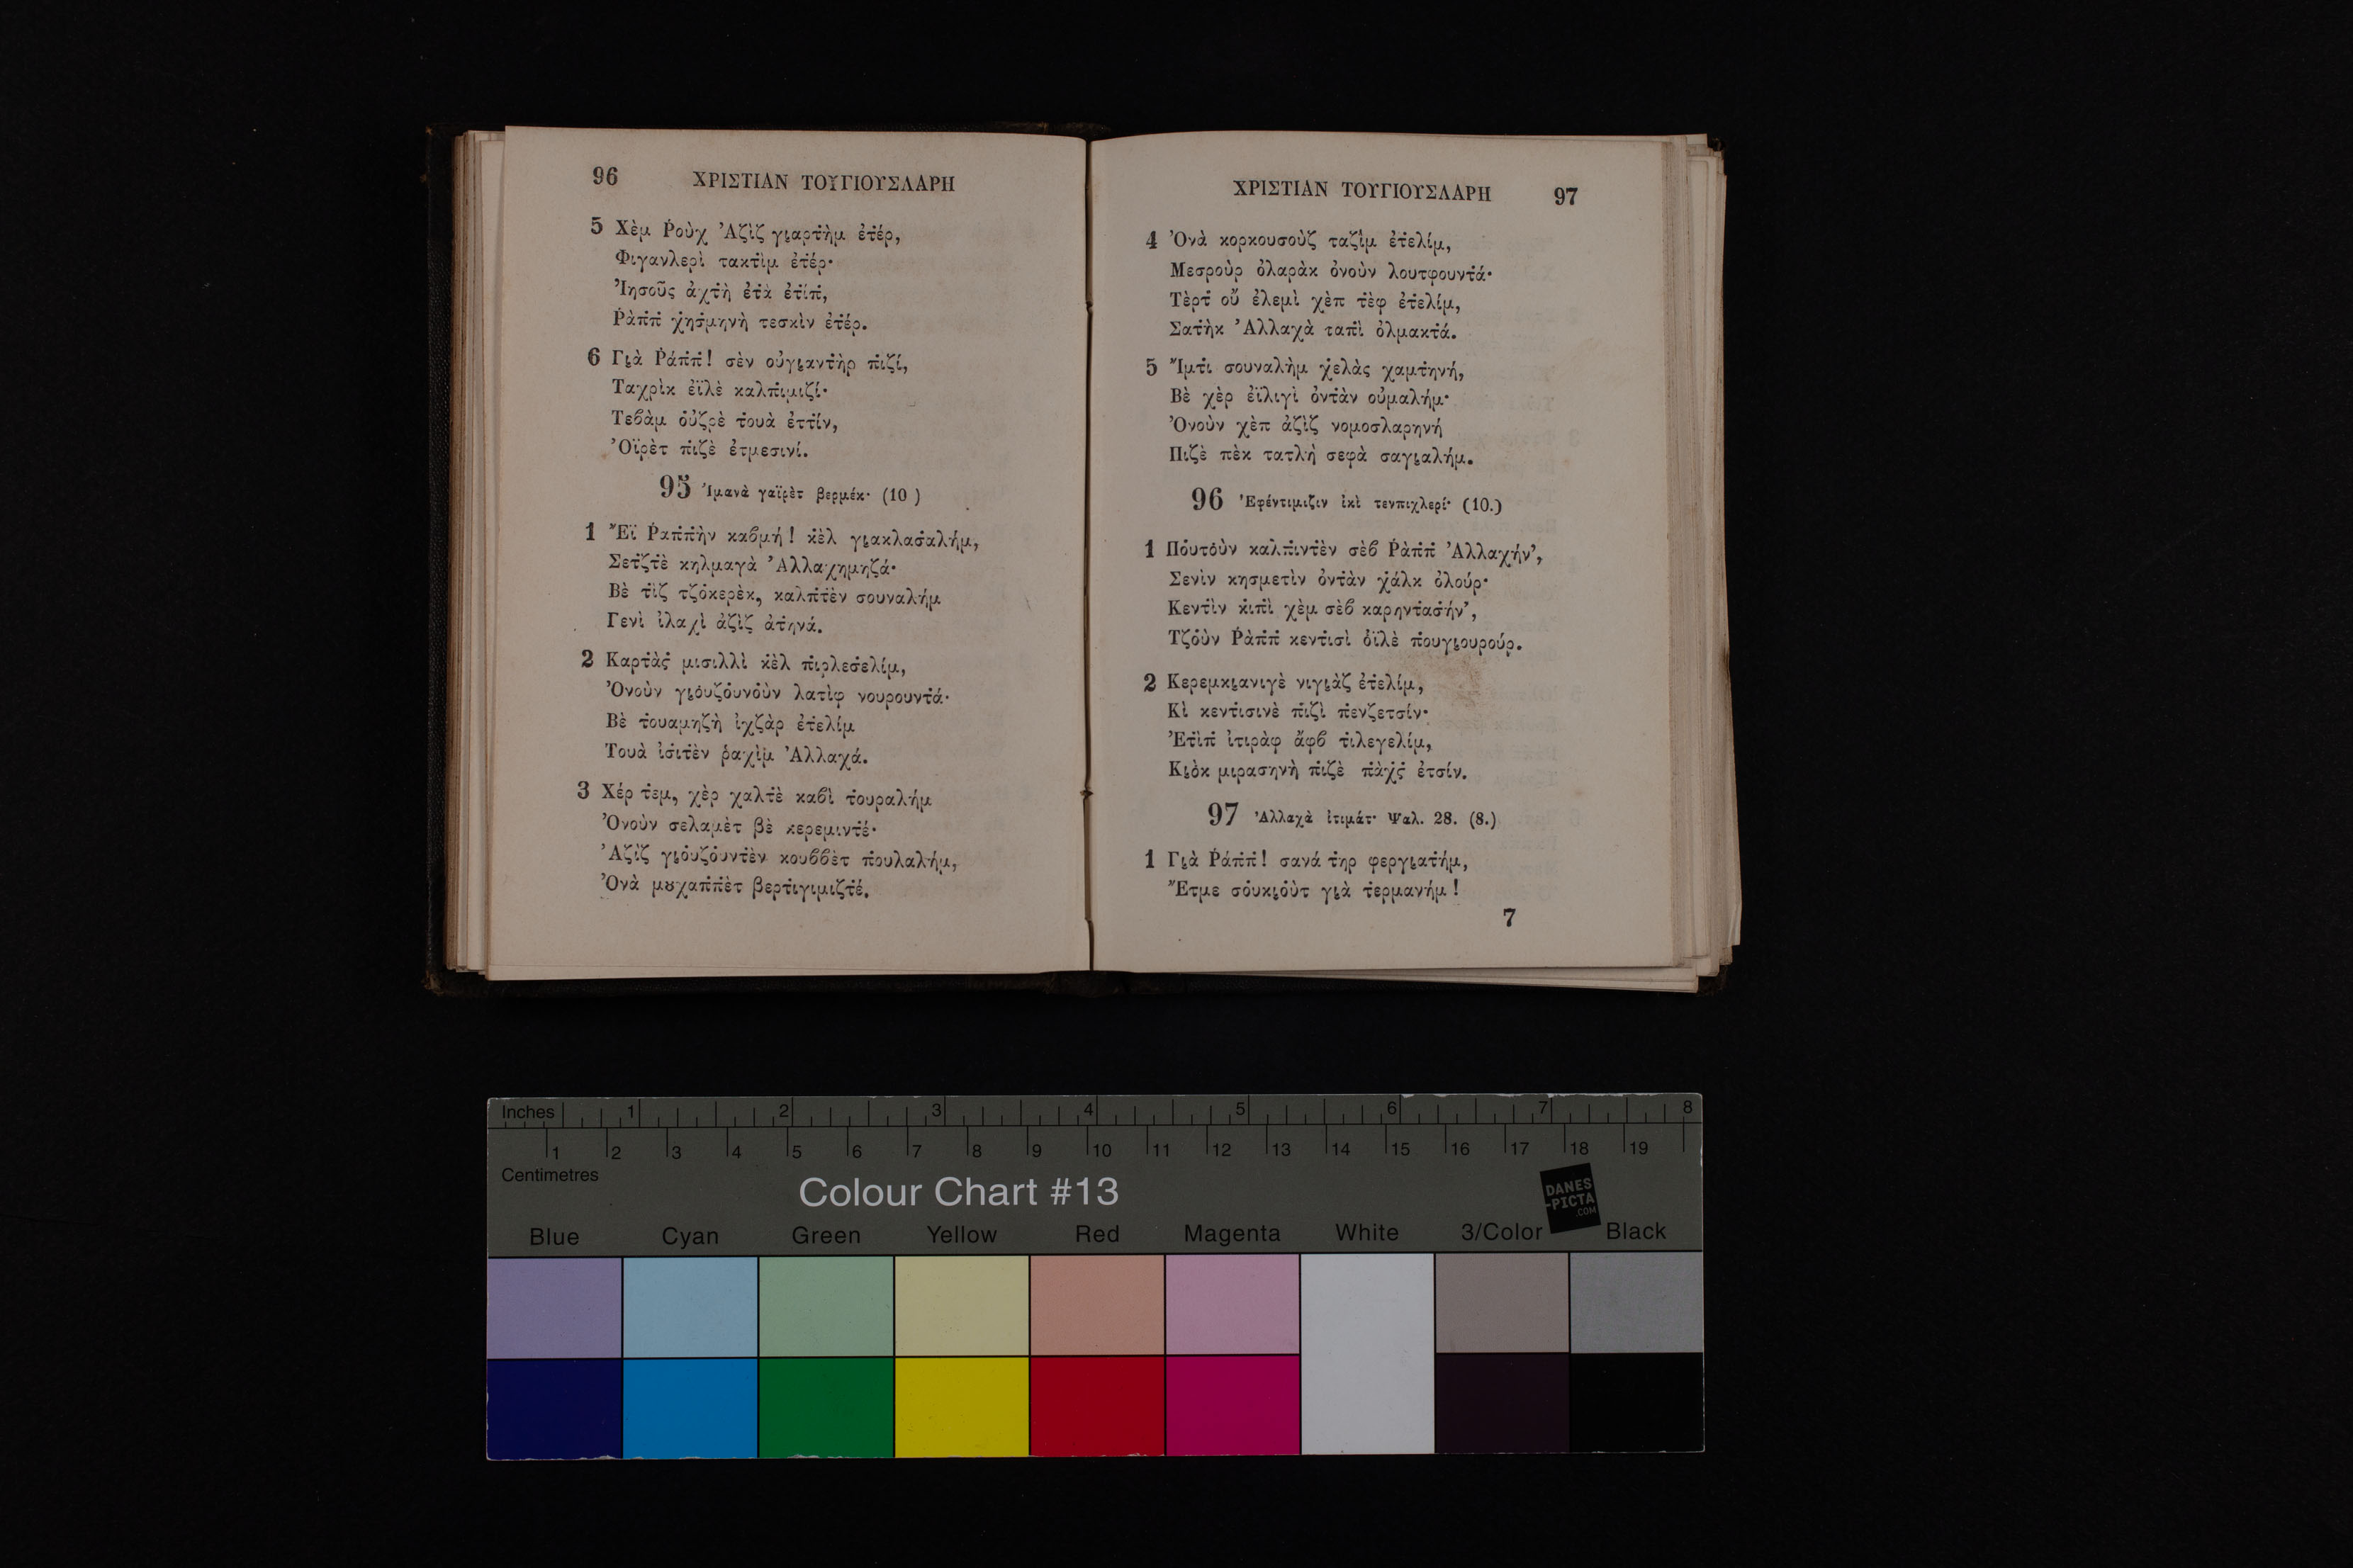 96 ΧΡΙΣΤΙΑΝ ΤΟΥΓΙΟΥΣΛΑΡΗ
5 Χὲμ Ῥοὺχ Ἀζὶζ γι̮αρτ̇ὴμ ἐτ̇έρ,
Φιγανλερὶ τακτ̇ὶμ ἐτ̇έρ·
Ἰησοῦς ἀχτ̇ὴ ἐτ̇ὰ ἐτ̇ίπ̇,
Ῥὰπ̇π̇ χ̇ησ̇μηνὴ τεσκὶν ἐτ̇έρ.
6 Γι̮ὰ Ῥάπ̇π̇! σὲν οὐγι̮αντ̇ὴρ π̇ιζί,
Ταχρὶκ ἐϊλὲ καλπ̇ιμιζί·
Τεϐὰμ ο̇ὐζρὲ τ̇ουὰ ἐττ̇ίν,
Ὀϊρὲτ π̇ιζὲ ἐτμεσινί.
95 Ἰμανὰ γαϊρὲτ βερμέκ· (10 )
1 Ἔϊ Ῥαπ̇π̇ὴν καϐμή! κ̇ὲλ γι̮ακλασ̇αλήμ,
Σετζτ̇ὲ κηλμαγὰ Ἀλλαχημηζά·
Βὲ τ̇ὶζ τζ̇ο̇κερὲκ, καλπτ̇ὲν σουναλήμ
Γενὶ ἰλαχὶ ἀζὶζ ἀτ̇ηνά.
2 Καρτ̇ὰς̇ μισιλλὶ κ̇ὲλ π̇ιρλεσ̇ελίμ,
Ὀνοὺν γι̮ο̇υζο̇υνο̇ὺν λατὶφ νουρουντ̇ά·
Βὲ τ̇ουαμηζὴ ἰχζὰρ ἐτ̇ελίμ
Τουὰ ἰσ̇ιτ̇ὲν ῥαχὶμ Ἀλλαχά.
3 Χέρ τ̇εμ, χὲρ χαλτ̇ὲ καϐὶ τ̇ουραλήμ
Ὀνοὺν σελαμὲτ βὲ κερεμιντ̇έ·
Ἀζὶζ γι̮ο̇υζο̇υντ̇ὲν κουϐϐὲτ π̇ουλαλήμ,
Ὀνὰ μȣχαπ̇π̇ὲτ βερτ̇ιγιμιζτ̇έ.
ΧΡΙΣΤΙΑΝ ΤΟΥΓΙΟΥΣΛΑΡΗ 97
4 Ὀνὰ κορκουσοὺζ ταζὶμ ἐτ̇ελίμ,
Μεσρούρ ὀλαρὰκ ὀνοὺν λουτφουντ̇ά·
Τὲρτ̇ οὔ ἐλεμὶ χὲπ τ̇ὲφ ἐτ̇ελίμ,
Σατ̇ὴκ Ἀλλαχὰ ταπ̇ὶ ὀλμακτ̇ά.
5 Ἴμτ̇ι σουναλὴμ χ̇ελὰς χαμτ̇ηνή,
Βὲ χὲρ ἐϊλιγὶ ὀντ̇ὰν οὐμαλήμ·
Ὀνοὺν χὲπ ἀζὶζ νομοσλαρηνή
Πιζὲ πὲκ τατλὴ σεφὰ σαγι̮αλήμ.
96 Ἐφέντιμιζιν ἰκὶ τενπιχλερί· (10.)
1 Πο̇υτο̇ὺν καλπ̇ιντὲν σὲϐ Ῥὰπ̇π̇ Ἀλλαχήν’,
Σενὶν κησμετὶν ὀντ̇ὰν χ̇άλκ ὀλούρ·
Κεντ̇ὶν κ̇ιπ̇ὶ χὲμ σὲϐ καρηντ̇ασ̇ήν’,
Τζο̇ὺν Ῥὰπ̇π̇ κεντ̇ισὶ ὀϊλὲ π̇ουγι̮ουρούρ.
2 Κερεμκι̮ανιγὲ νιγι̮ὰζ ἐτ̇ελίμ,
Κὶ κεντ̇ισινὲ π̇ιζὶ π̇ενζετσίν·
Ἐτ̇ὶπ̇ ἰτιρὰφ ἄφϐ τ̇ιλεγελίμ,
Κι̮ὸκ μιρασηνὴ π̇ιζὲ π̇ὰχ̇ς̇ ἐτσίν.
97 Ἀλλαχὰ ἰτιμάτ· Ψαλ. 28. (8.)
1 Γι̮ὰ Ῥάπ̇π̇! σανά τ̇ηρ φεργι̮ατ̇ήμ,
Ἔτμε σο̇υκι̮ο̇ὺτ γι̮ὰ τ̇ερμανήμ!
7
Inches 1 2 3 4 5 6 7 8
1 2 3 4 5 6 7 8 9 10 11 12 13 14 15 16 17 18 19
Centimetres
Colour Chart #13
DANES
-PICTA
.COM
Blue Cyan Green Yellow Red Magenta White 3/Color Black